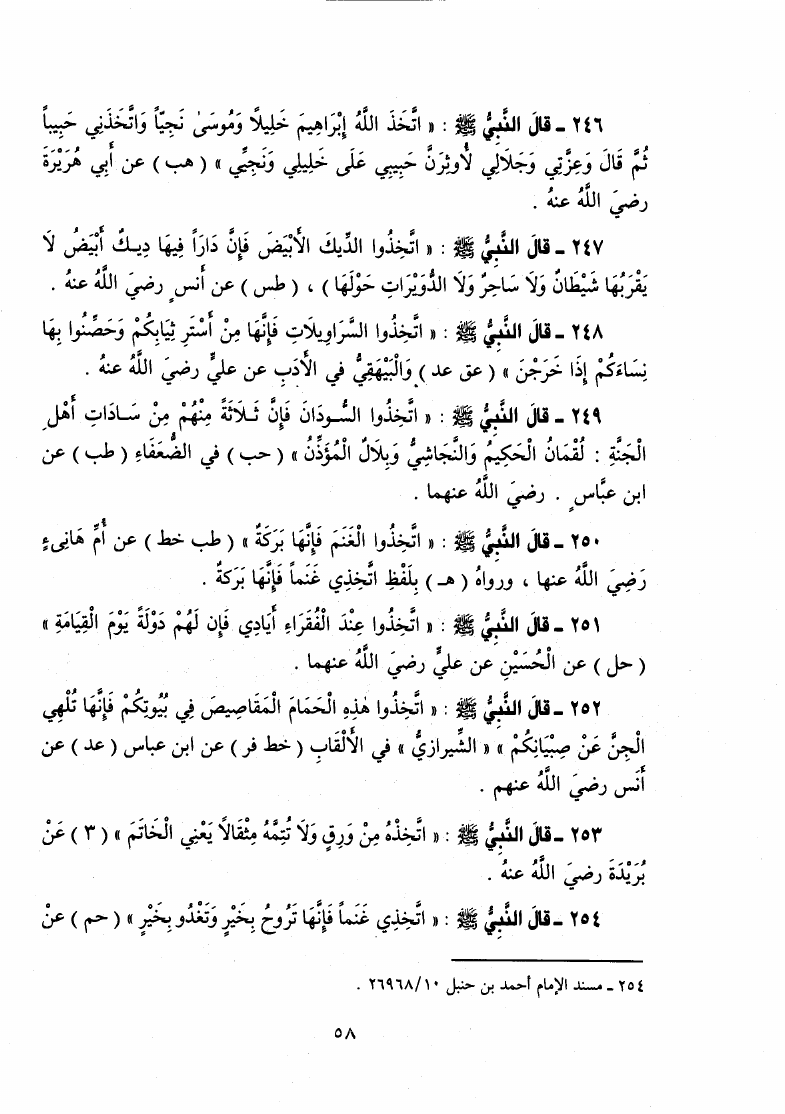 ٢٤٦ - قالَ النَّبِيُّ ﷺ : « اتَّخَذَ اللَّهُ إِبْرَاهِيمَ خَلِيلاً وَمُوسَىٰ نَجِيّاً وَاتَّخَذَنِي حَبِيباً
ثُمَّ قَالَ وَعِزَّتِي وَجَلَالِي لأُوثِرَنَّ حَبِيبِي عَلَى خَلِيلِي وَنَجِيِّي » ( هب ) عن أَبِي هُرَيْرَةَ
رضيَ اللَّهُ عنهُ .
٢٤٧ - قالَ النَّبِيُّ ﷺ : « اتَّخِذُوا الدِّيكَ الأَبْيَضَ فَإِنَّ دَاراً فِيهَا دِيكٌ أَبْيَضُ لَا
يَقْرَبُهَا شَيْطَانٌ وَلَا سَاحِرٌ وَلَا الدُّوَيْرَاتِ حَوْلَهَا ) ، ( طس ) عن أَنس ٍ رضيَ اللَّهُ عنهُ .
٢٤٨ - قالَ النَّبِيُّ ﷺ : « اتَّخِذُوا السَّرَاوِيلَاتِ فَإِنَّهَا مِنْ أَسْتَرِ ثِيَابِكُمْ وَحَصِّنُوا بِهَا
نِسَاءَكُمْ إِذَا خَرَجْنَ » ( عق عد ) وَالْبَيْهَقِيُّ في الأَدَبِ عن عليٍّ رضيَ اللَّهُ عنهُ .
٢٤٩ - قالَ النَّبِيُّ ﷺ : « اتَّخِذُوا السُّودَانَ فَإِنَّ ثَلَاثَةً مِنْهُمْ مِنْ سَادَاتِ أَهْلِ
الجَنَّةِ : لُقْمَانُ الْحَكِيمُ وَالنَّجَاشِيُّ وَبِلَالٌ الْمُؤَذِّنُ » ( حب ) في الضُّعَفَاءِ ( طب ) عن
ابن عبَّاسٍ . رضيَ اللَّهُ عنهما .
٢٥٠ - قالَ النَّبِيُّ ﷺ : « اتَّخِذُوا الْغَنَمَ فَإِنَّهَا بَرَكَةٌ » ( طب خط ) عن أُمِّ هَانِىءٍ
رَضِيَ اللَّهُ عنها ، ورواهُ ( هـ ) بِلَفْظِ اتَّخِذِي غَنَماً فَإِنَّهَا بَرَكةٌ .
٢٥١ - قالَ النَّبِيُّ ﷺ : « اتَّخِذُوا عِنْدَ الْفُقَرَاءِ أَيَادِي فَإِن لَهُمْ دَوْلَةً يَوْمَ الْقِيَامَةِ »
( حل ) عن الْحُسَيْنِ عن عليٍّ رضيَ اللَّهُ عنهما .
٢٥٢ - قالَ النَّبِيُّ ﷺ : « اتَّخِذُوا هٰذِهِ الْحَمَامَ الْمَقَاصِيصَ فِي بُيُوتِكُمْ فَإِنَّهَا تُلْهِي
الْجِنَّ عَنْ صِبْيَانِكُمْ » « الشِّيرازيُّ » في الأَلْقَابِ ( خط فر ) عن ابن عباس ( عد ) عن
أَنَس رضيَ اللَّهُ عنهم .
٢٥٣ - قالَ النَّبِيُّ ﷺ : « اتَّخِذْهُ مِنْ وَرِقٍ وَلَا تُتِمَّهُ مِثْقَالاً يَعْنِي الْخَاتَمَ » ( ٣ ) عَنْ
بُرَيْدَةَ رضيَ اللَّهُ عنهُ .
٢٥٤ - قالَ النَّبِيُّ ﷺ : « اتَّخِذِي غَنَماً فَإِنَّهَا تَرُوحُ بِخَيْرٍ وَتَغْدُو بِخَيْرٍ » ( حم ) عَنْ
٢٥٤ - مسند الإمام أحمد بن حنبل ٢٦٩٦٨/١٠ .
٥٨